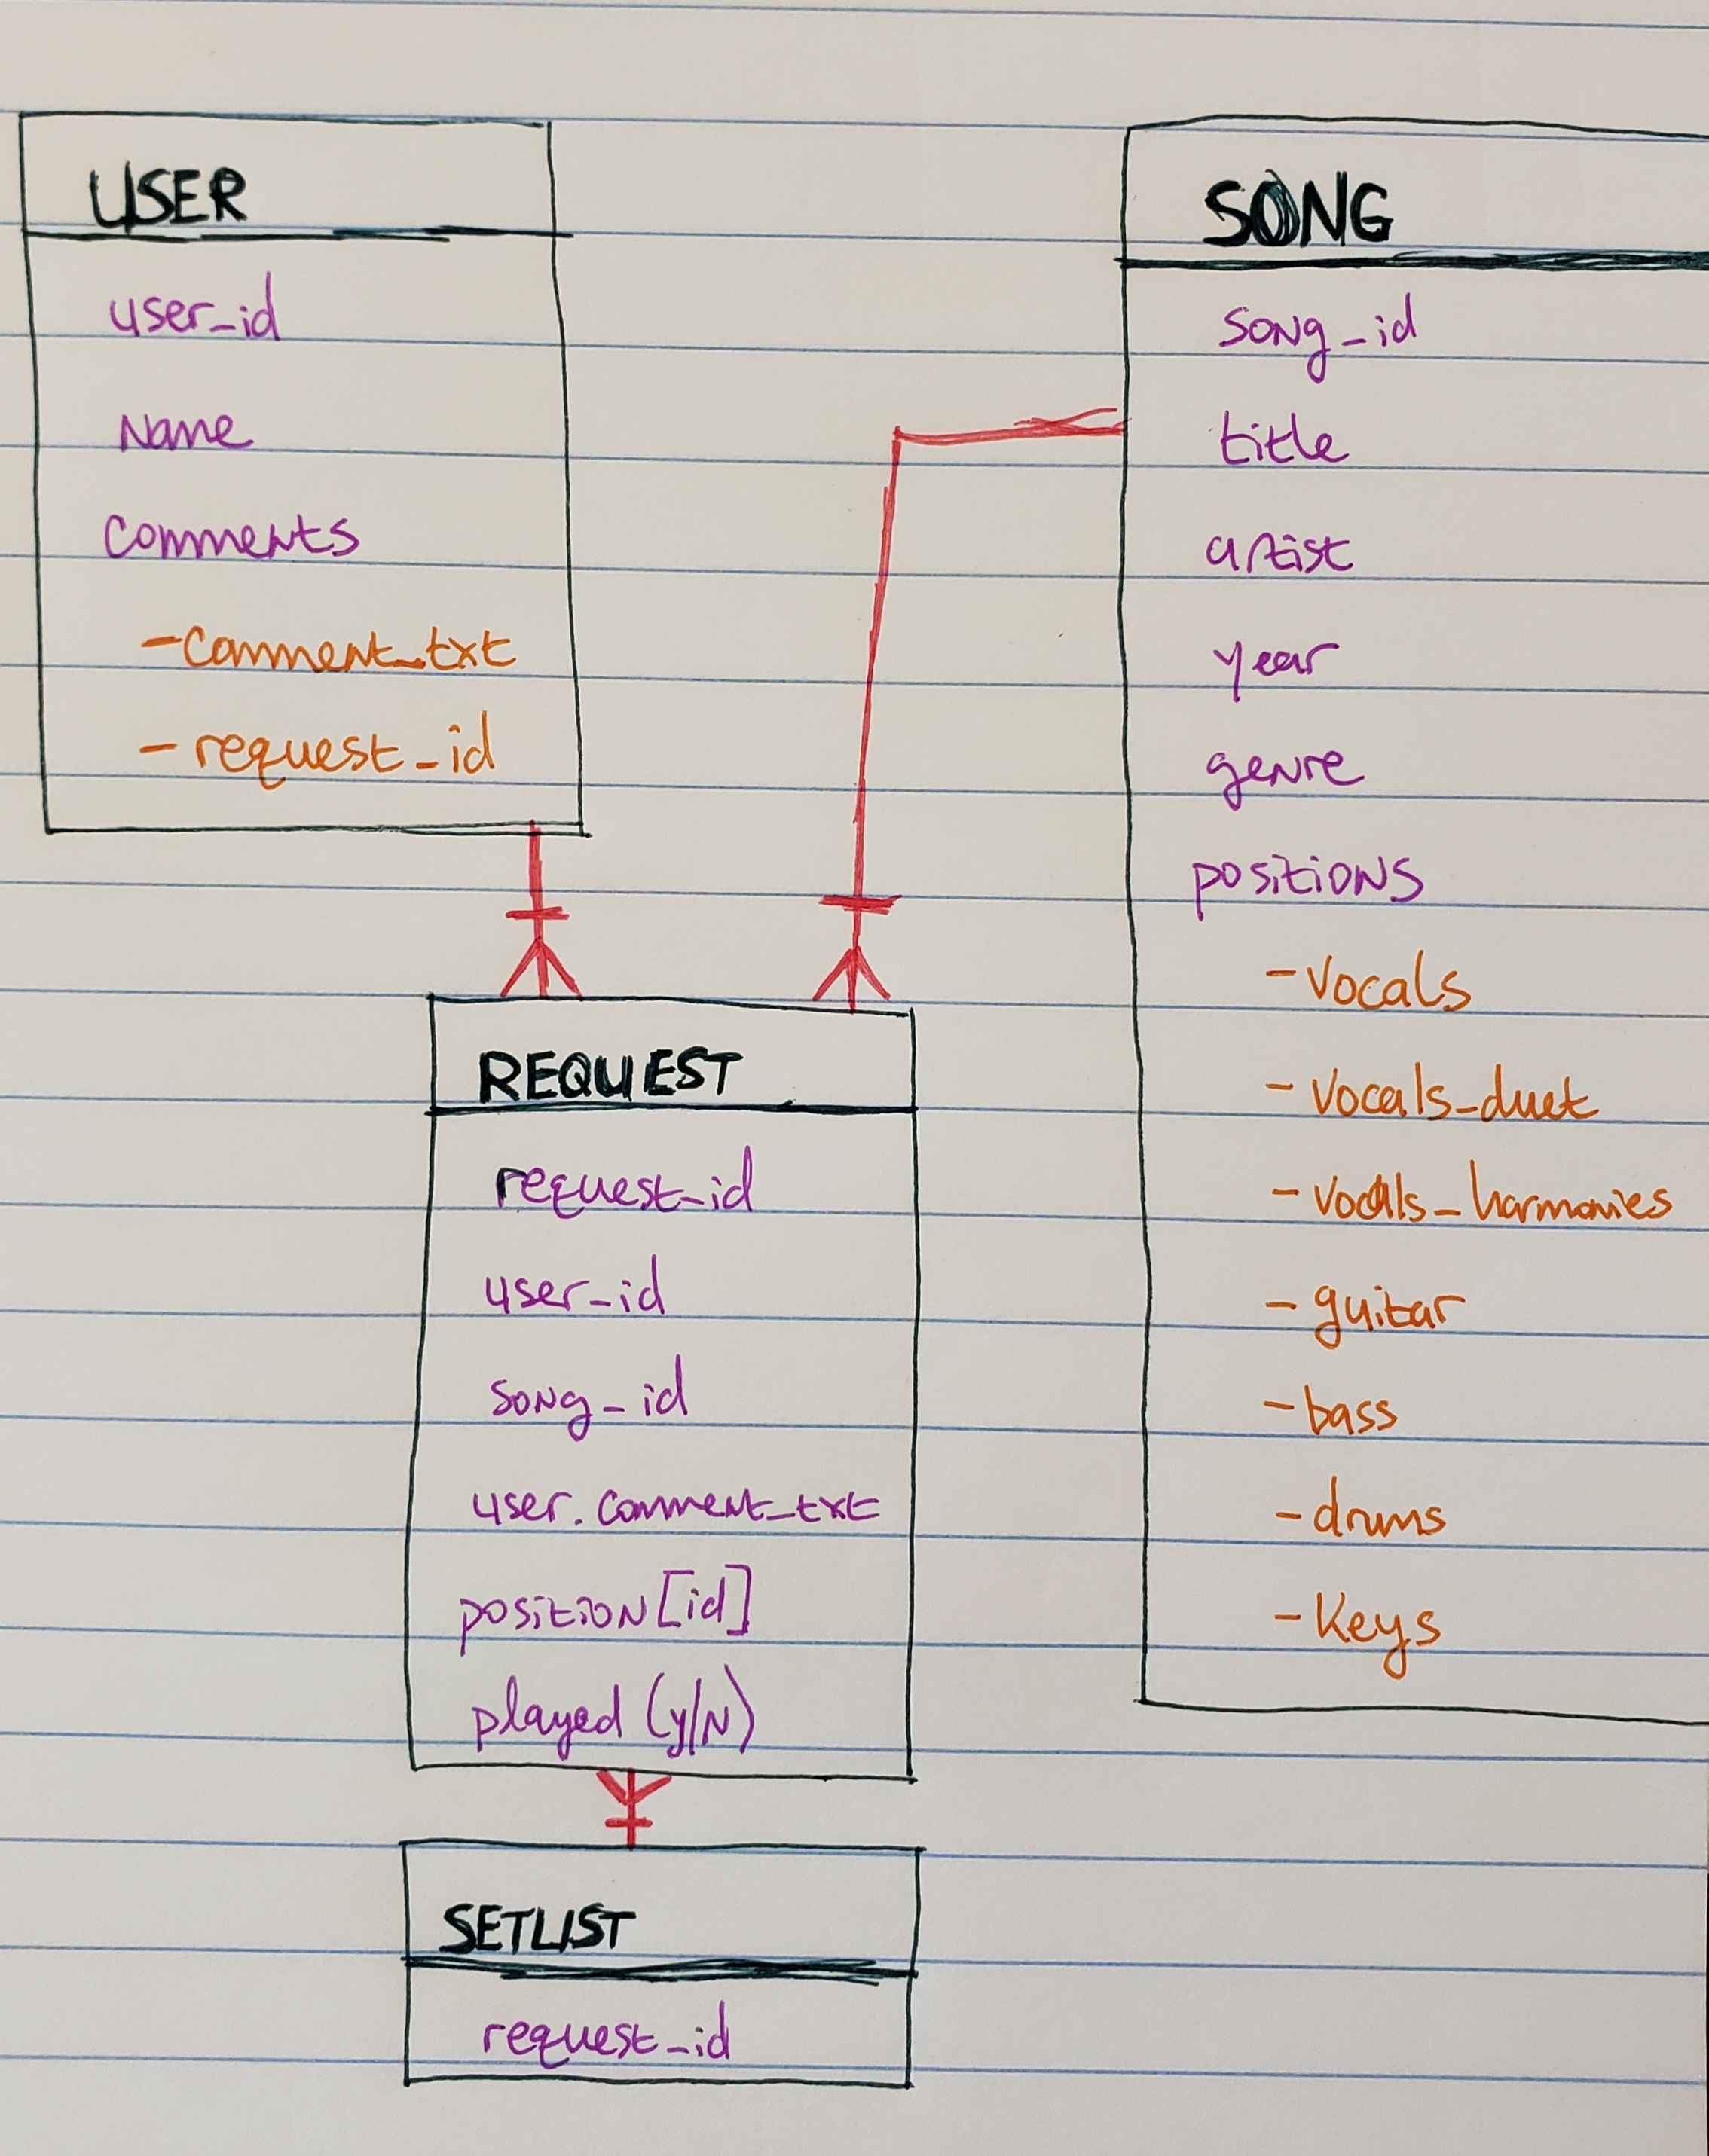 USER
user_id
Name
Comments
- Comment_txt
- request_id
SONG
song_id
title
artist
year
genre
positions
- vocals
- vocals_duet
- vocals_harmonies
- guitar
- bass
- drums
- Keys
REQUEST
request_id
user_id
song_id
user.comment_txt
position[id]
played (y/N)
SETLIST
request_id